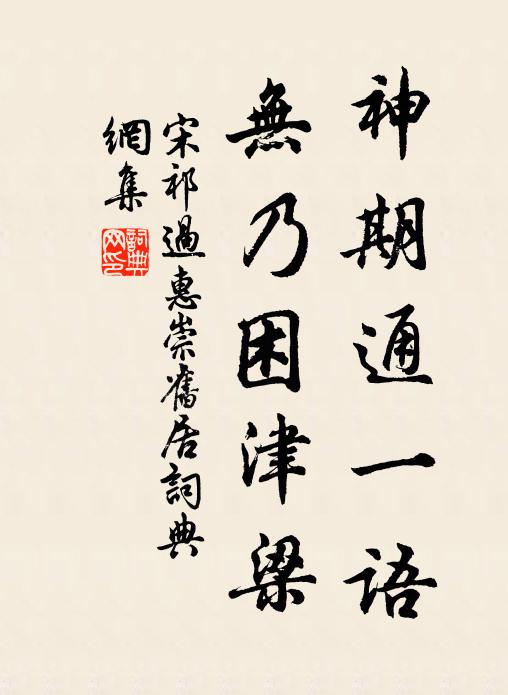 神期通一語
無乃困津梁
宋祁過惠崇舊居詞典
網集
詞典
网印